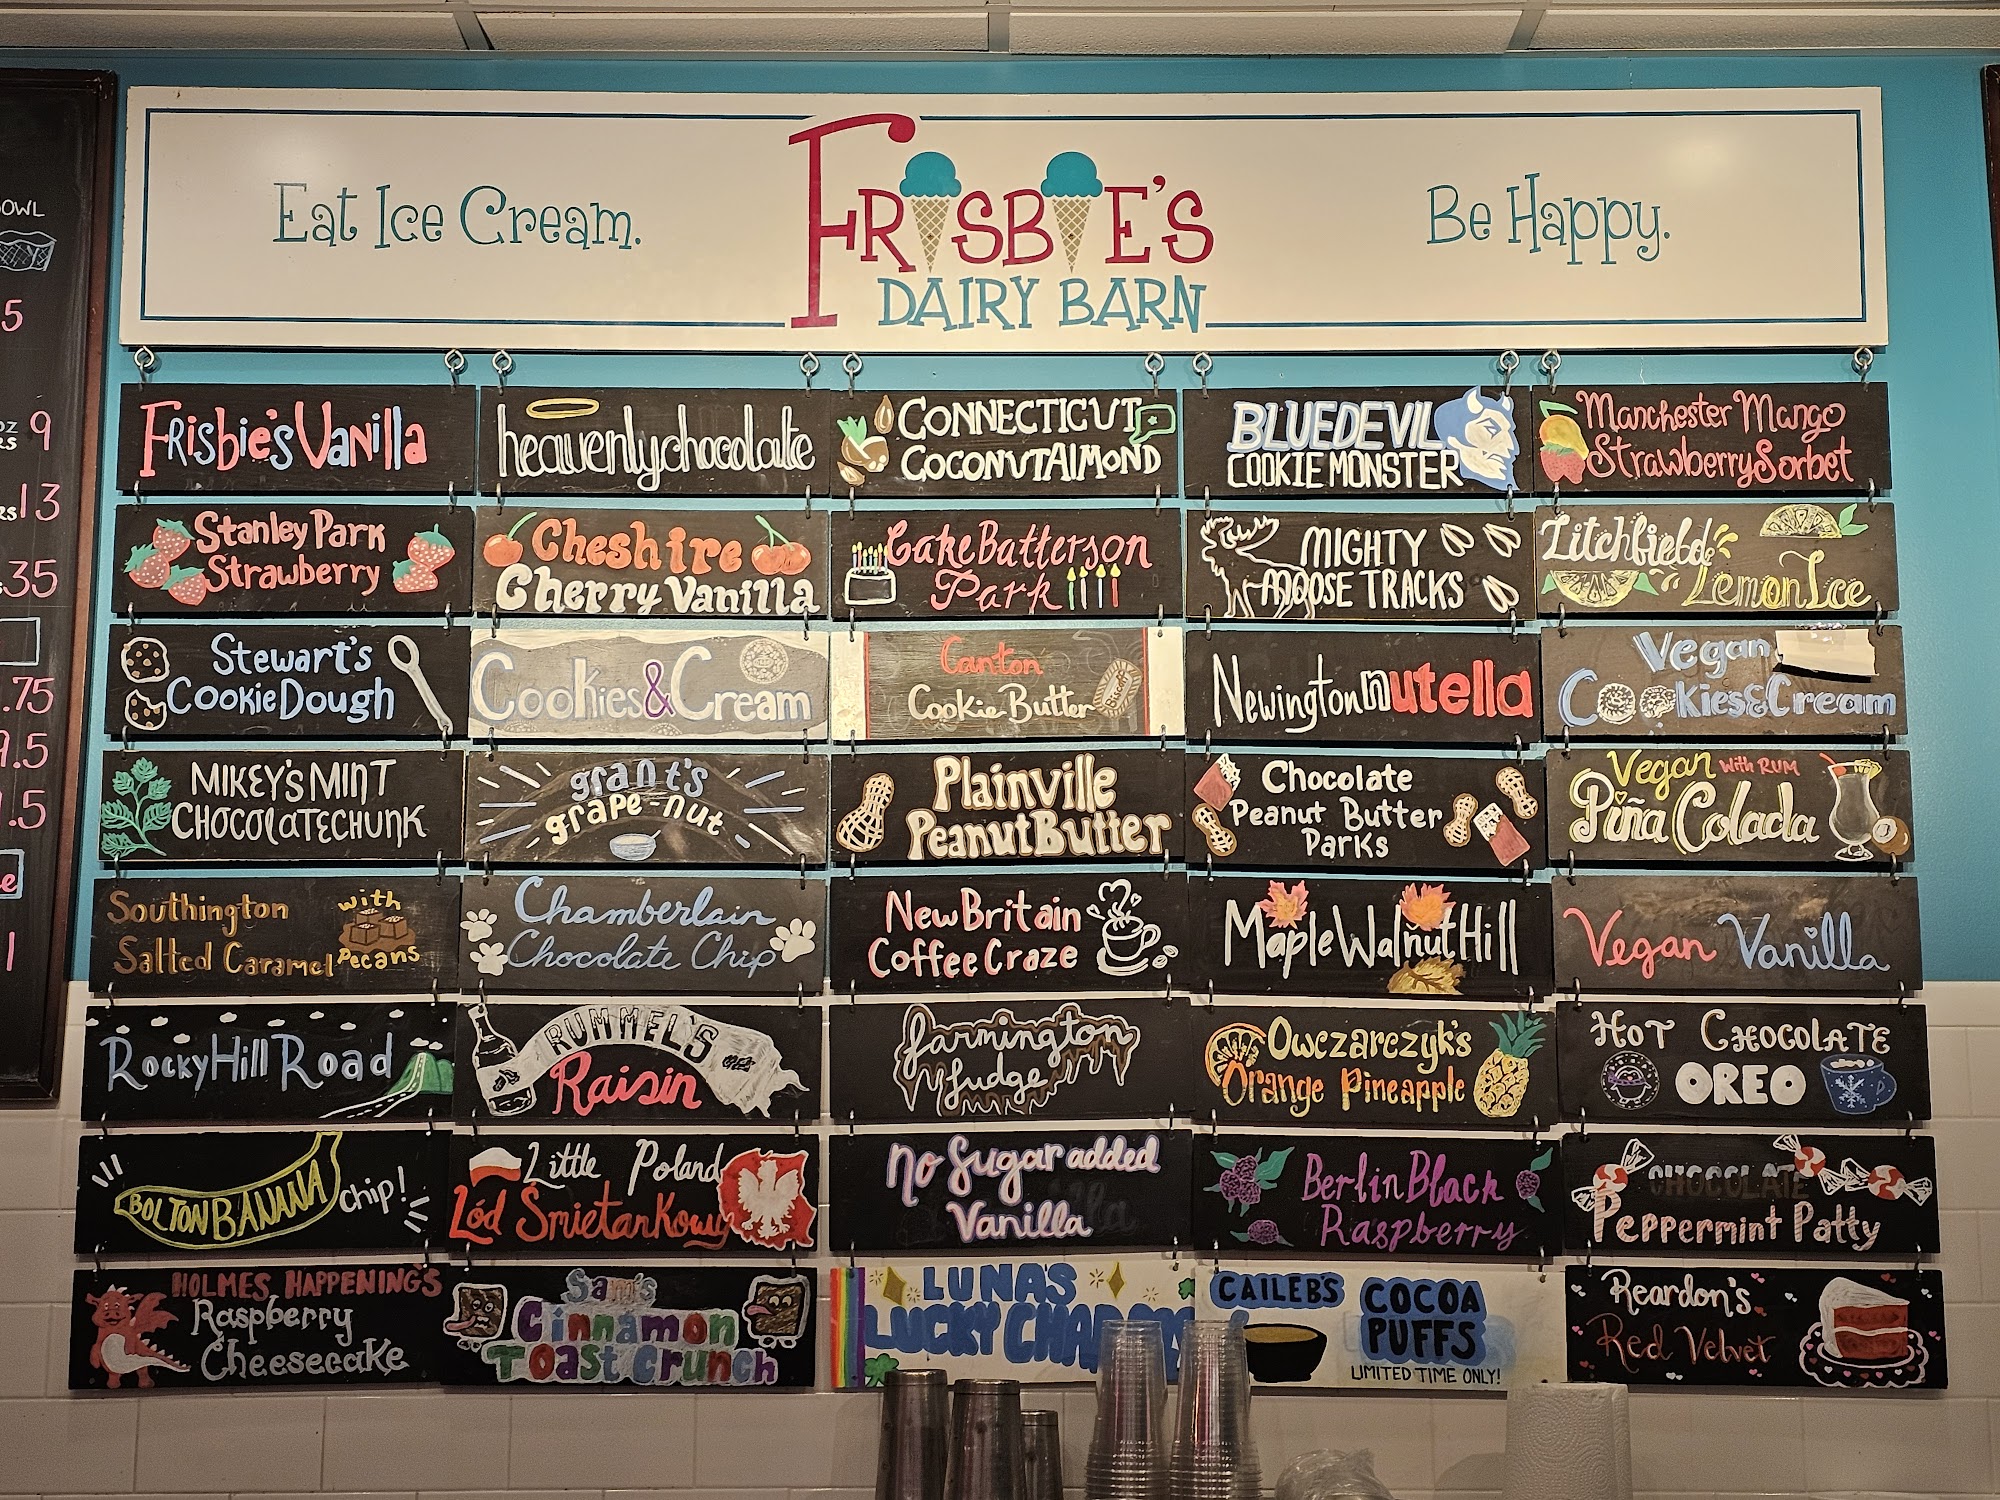 Eat Ice Cream.
FRISBIE'S
DAIRY BARN
Be Happy.
OWL
5
OZ 9
RS
RS 13
35
.75
9.5
.5
e
1
Frisbie's Vanilla
heavenly chocolate
CONNECTICUT
COCONUT ALMOND
BLUE DEVIL
COOKIE MONSTER
Manchester Mango
Strawberry Sorbet
Stanley Park
Strawberry
Cheshire
Cherry Vanilla
Cake Batterson
Park
MIGHTY
MOOSE TRACKS
Litchfield
Lemon Ice
Stewart's
Cookie Dough
Cookies & Cream
Canton
Cookie Butter
Biscoff
Newington nutella
Vegan
Cookies & Cream
MIKEY'S MINT
CHOCOLATE CHUNK
grant's
grape-nut
Plainville
Peanut Butter
Chocolate
Peanut Butter
Parks
Vegan With RUM
Piña Colada
Southington with
Salted Caramel Pecans
Chamberlain
Chocolate Chip
New Britain
Coffee Craze
Maple Walnut Hill
Vegan Vanilla
Rocky Hill Road
RUMMEL'S
Raisin
farmington
fudge
Owczarczyk's
Orange Pineapple
HOT CHOCOLATE
OREO
BOLTON BANANA chip!
Little Poland
Lód Śmietankowy
No Sugar added
Vanilla
Berlin Black
Raspberry
CHOCOLATE
Peppermint Patty
HOLMES HAPPENING'S
Raspberry
Cheesecake
Sam's
Cinnamon
Toast Crunch
LUNA'S
LUCKY CHARMS
CAILEB'S COCOA
PUFFS
LIMITED TIME ONLY!
Reardon's
Red Velvet